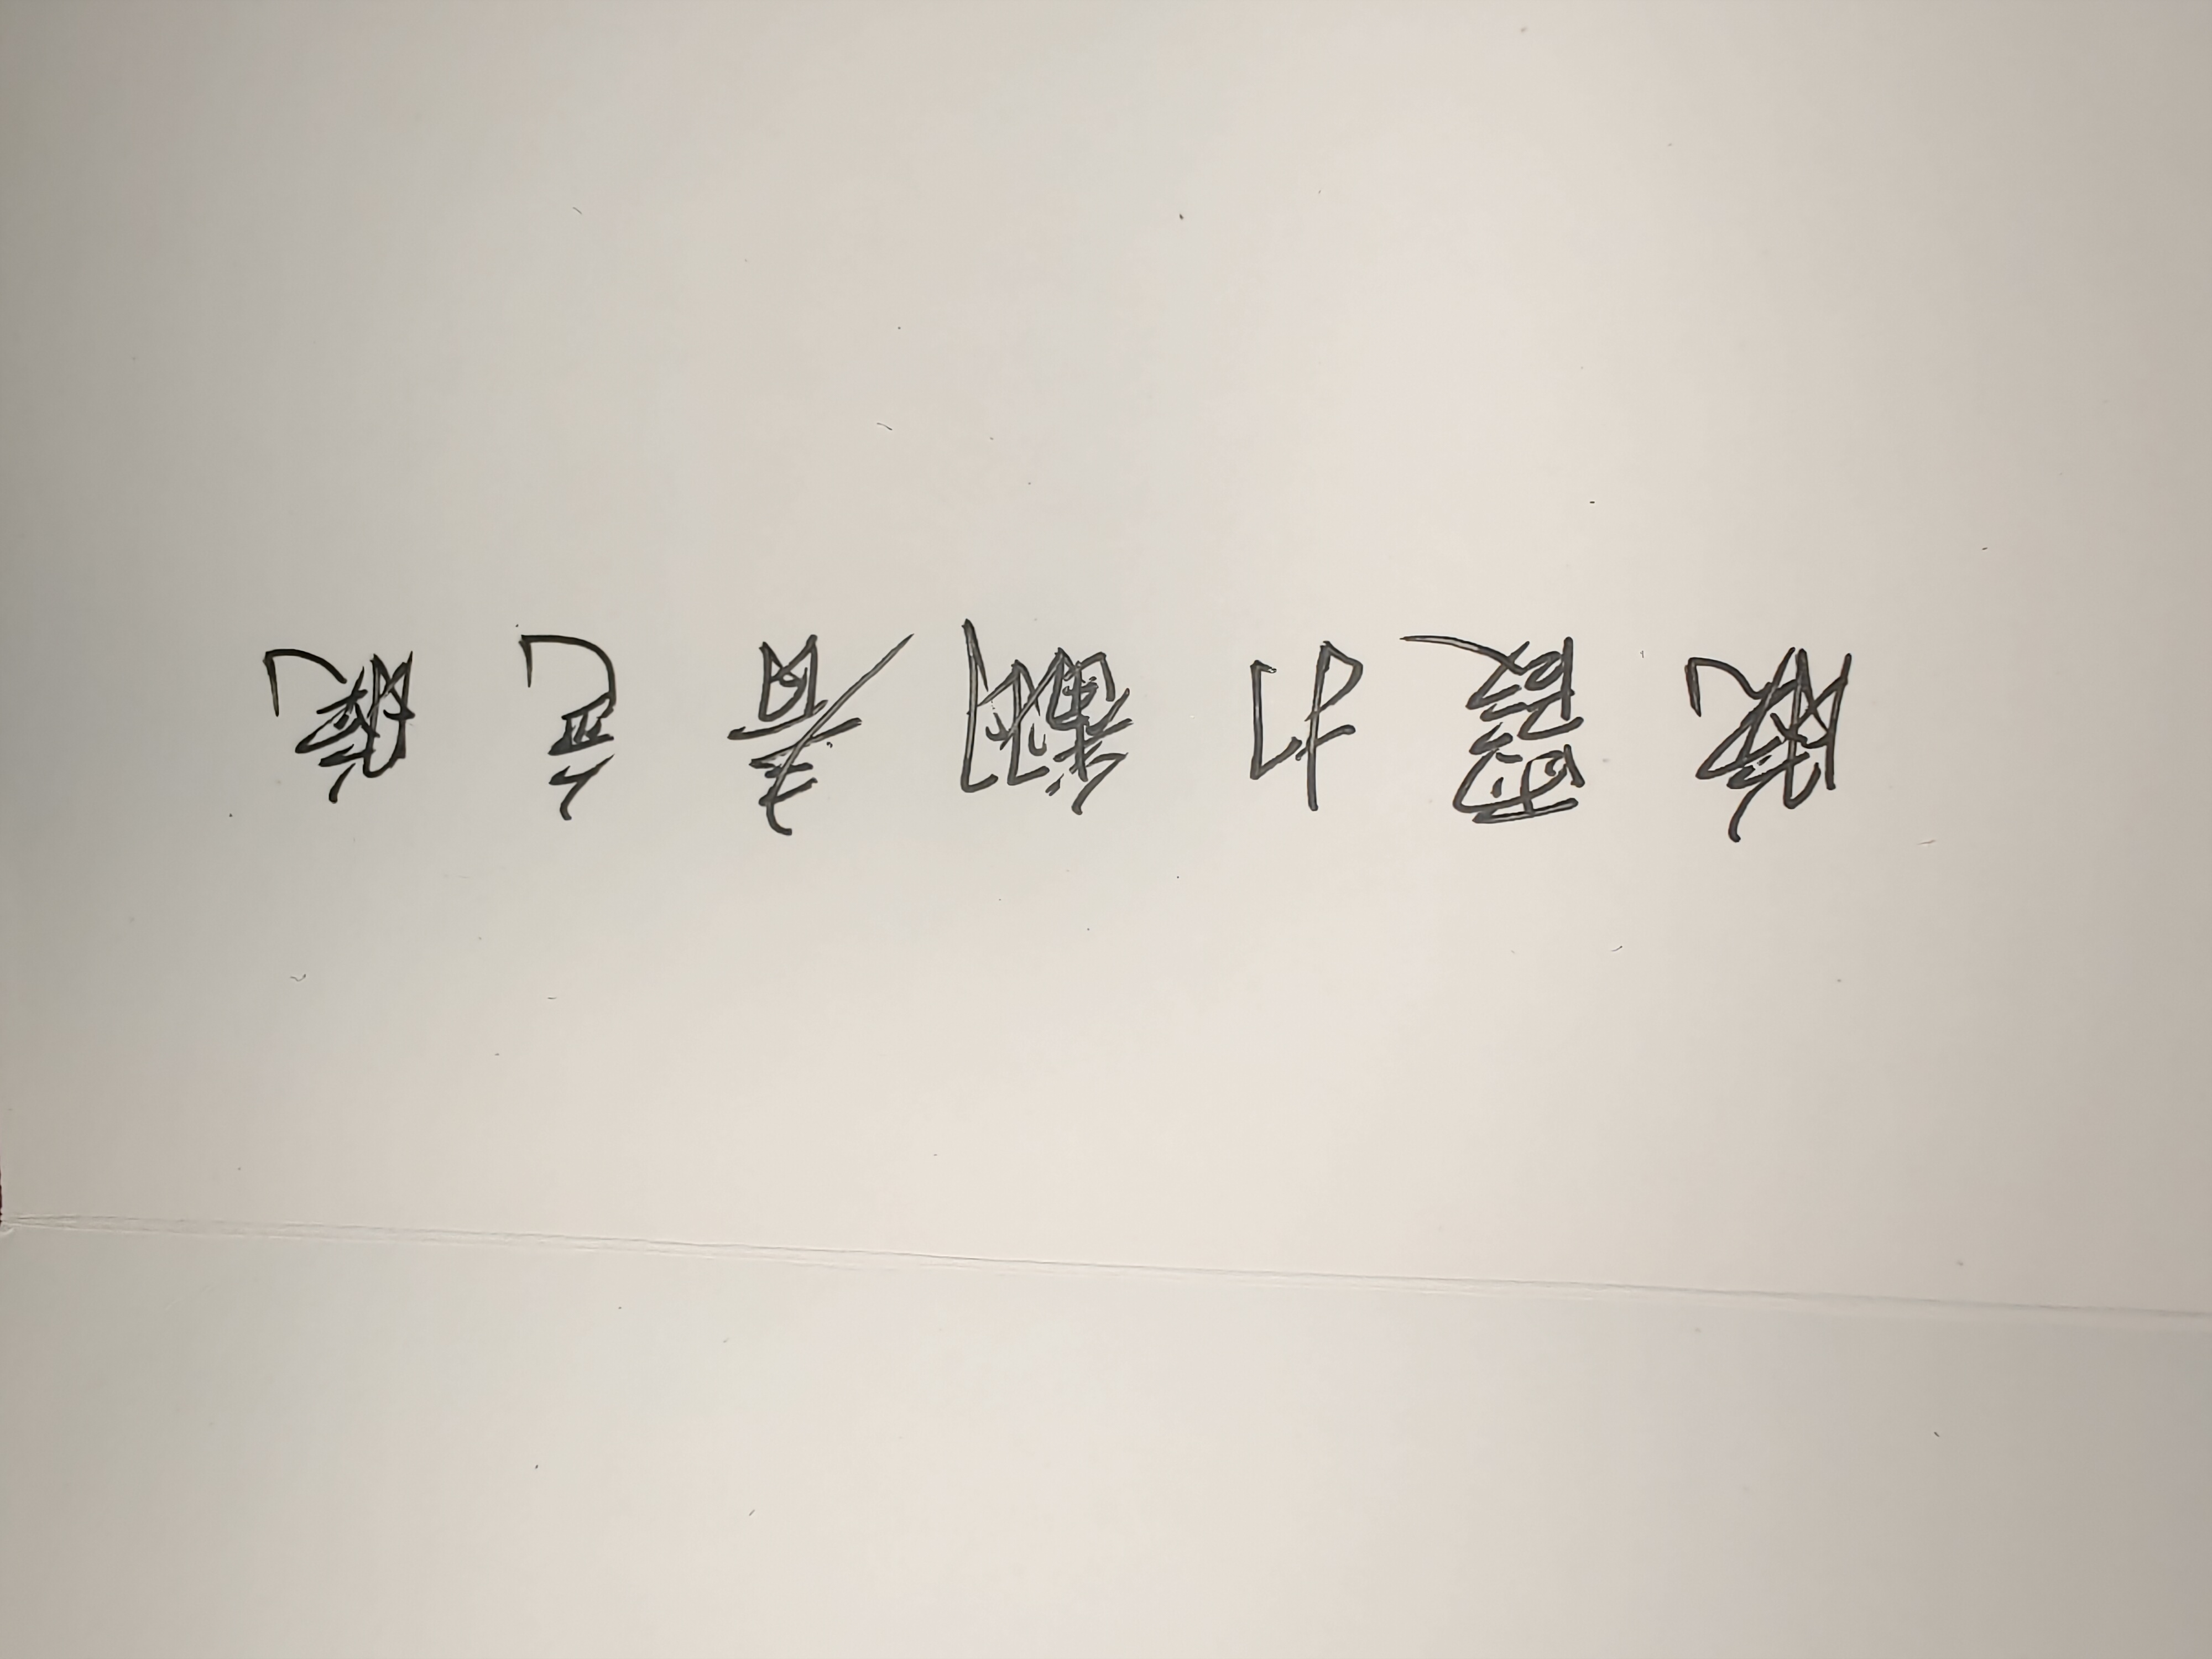 晚霞打翻春色晚